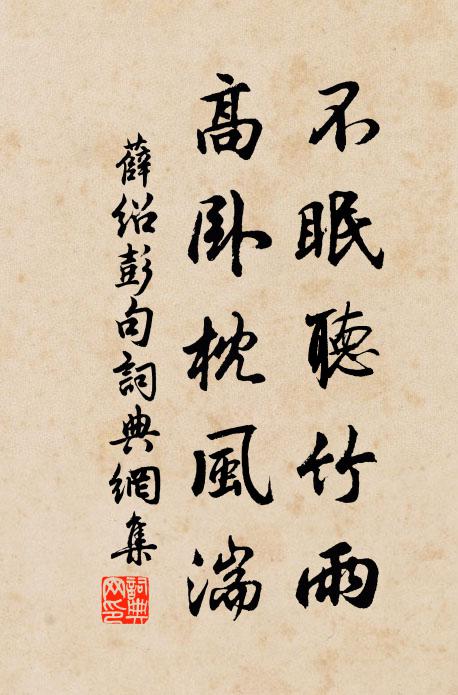 不眠聽竹雨
高臥枕風湍
薛紹彭句詞典網集
詞典